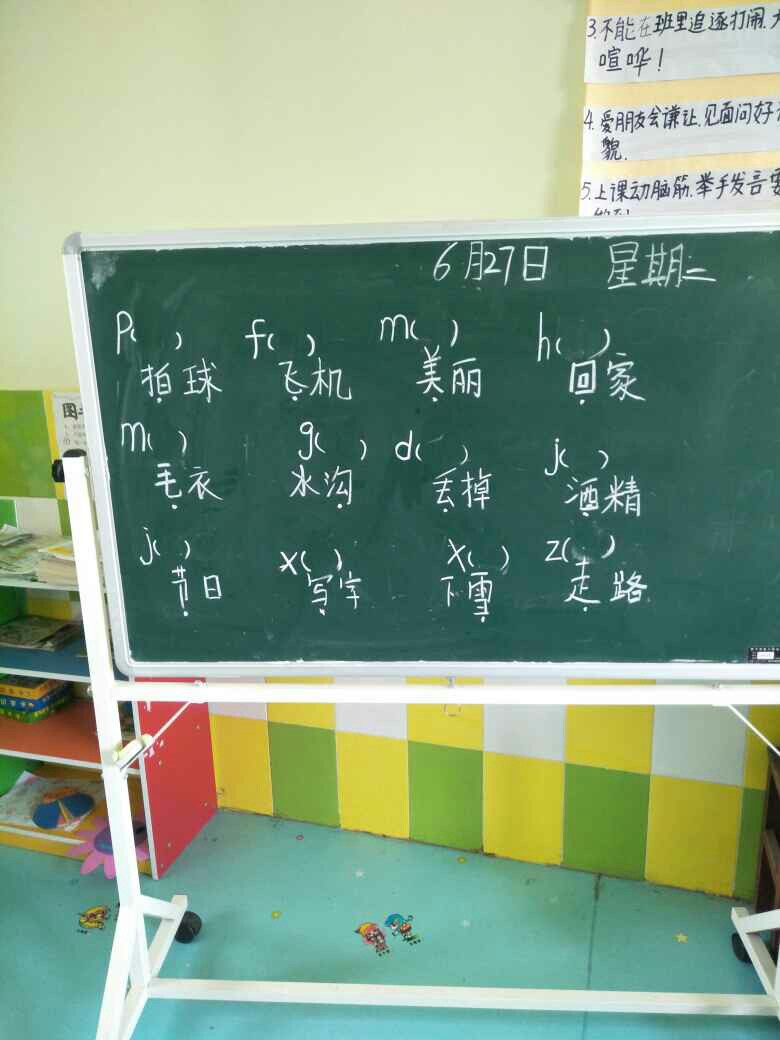 3.不能在班里追逐打闹.大
喧哗!
4.爱朋友会谦让.见面问好
貌.
5.上课动脑筋.举手发言要
6月27日 星期二
p( ) f( ) m( ) h( )
拍球 飞机 美丽 回家
m( ) g( ) d( ) j( )
毛衣 水沟 丢掉 酒精
j( ) x( ) x( ) z( )
节日 写字 下雪 走路